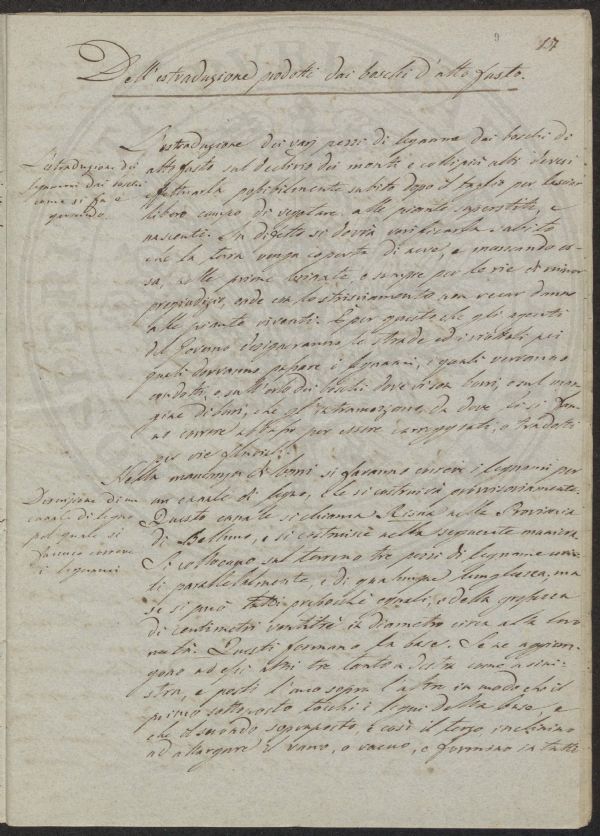 9 17
Dell'estraduzione prodotti dai boschi d'alto fusto.
L'estraduzione dei
legnami dai boschi
come si fa e
quando
L'estraduzione dei varj pezzi di legname dai boschi di
alto fusto sul declivio dei monti e colli più alti devesi
effettuarla possibilmente subito dopo il taglio per lasciar
libero campo di vegetare alle piante superstiti, e
nascenti. In difetto si dovrà verificarla subito
che la terra venga coperta di neve, e mancando es-
sa, nelle prime brinate, e sempre per le vie di minor
pregiudizio, onde con lo strisciamento non recar danno
alle piante viventi. È per questo che gli agenti
del Governo disegneranno le strade ed i viottoli pei
quali dovranno passare i legnami, i quali verranno
condotti, o sull'orlo dei boschi dove vi son burri, o sul mar-
gine di burri, da dove poi si fan-
no correre abbasso per essere carreggiati, o tradotti
per vie fluviali.
Descrizione di un
canale di legno
pel quale si
fanno correre
i legnami
Nella mancanza di burri si faranno correre i legnami per
un canale di legno, che si costruirà provvisoriamente.
Questo canale si chiama Risina nella Provincia
di Belluno, e si costruisce nella seguente maniera.
Si collocano sul terreno tre pezzi di legname uni-
ti parallelamente, e di qualunque lunghezza, ma
se si può tutti pressochè eguali, e della grossezza
di centimetri ventitrè in diametro circa alla loro
metà. Questi formano la base. Se ne aggiun-
gono ad essi altri tre tanto a destra come a sini-
stra, e posti l'uno sopra l'altro in modo che il
primo sottoposto tocchi i legni della base, e
che il secondo soprapposto, e così il terzo inclinino
ad allargare il vano, o vacuo, e formino in tutti